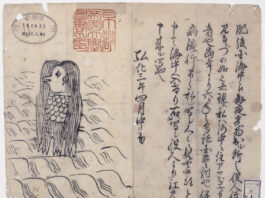 肥後国海中え毎夜光物出ル所之役人行
見るニづの如之者現ス私ハ海中ニ住アマビヱト申
者也当年より六ヶ年之間諸国豊作也併
病流行早々私写シ人々ニ見セ候得と
申て海中へ入けり右ハ写シ役人より江戸え
申来ル写也
弘化三年四月中旬